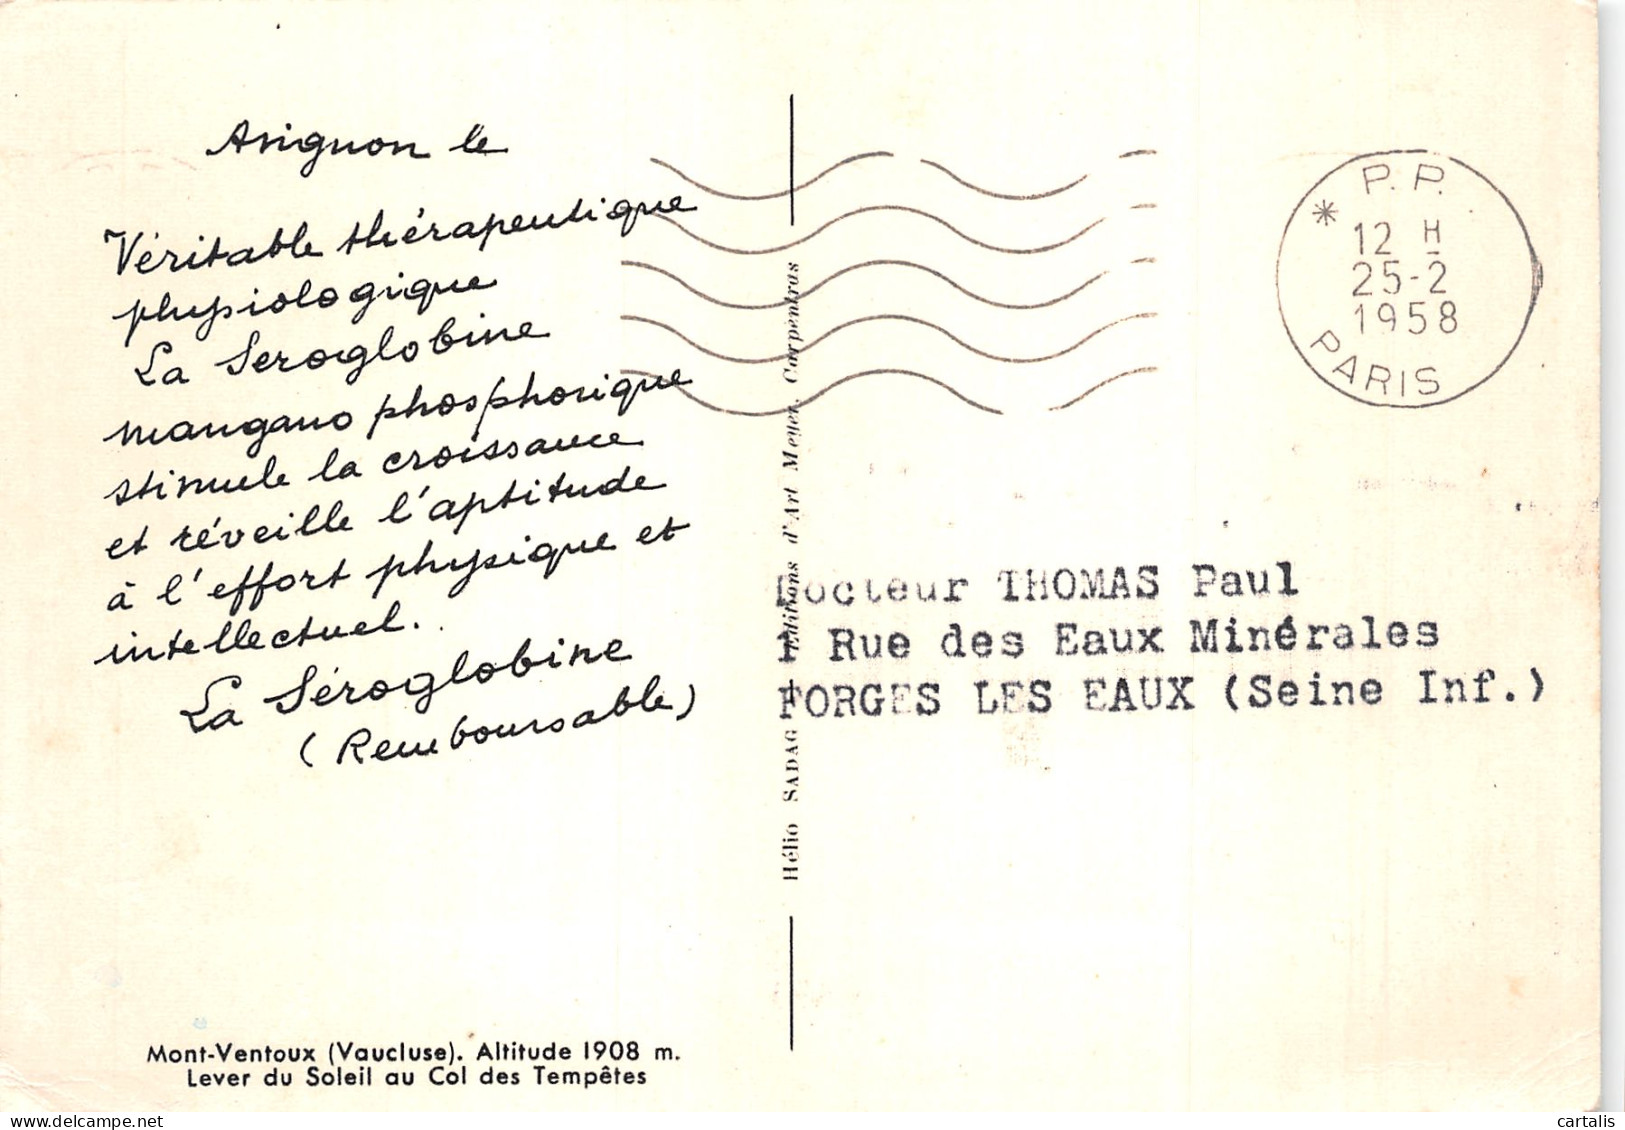 Avignon le
Véritable thérapeutique
physiologique
La Seroglobine
mangano phosphorique
stimule la croissance
et réveille l'aptitude
à l'effort physique et
intellectuel.
La Séroglobine
(Remboursable)
Mont-Ventoux (Vaucluse). Altitude 1908 m.
Lever du Soleil au Col des Tempêtes
Hélio SADAG - Editions d'Art Meyer, Carpentras
P.P.
12 H
25-2
1958
PARIS
Docteur THOMAS Paul
1 Rue des Eaux Minérales
FORGES LES EAUX (Seine Inf.)
cartalis